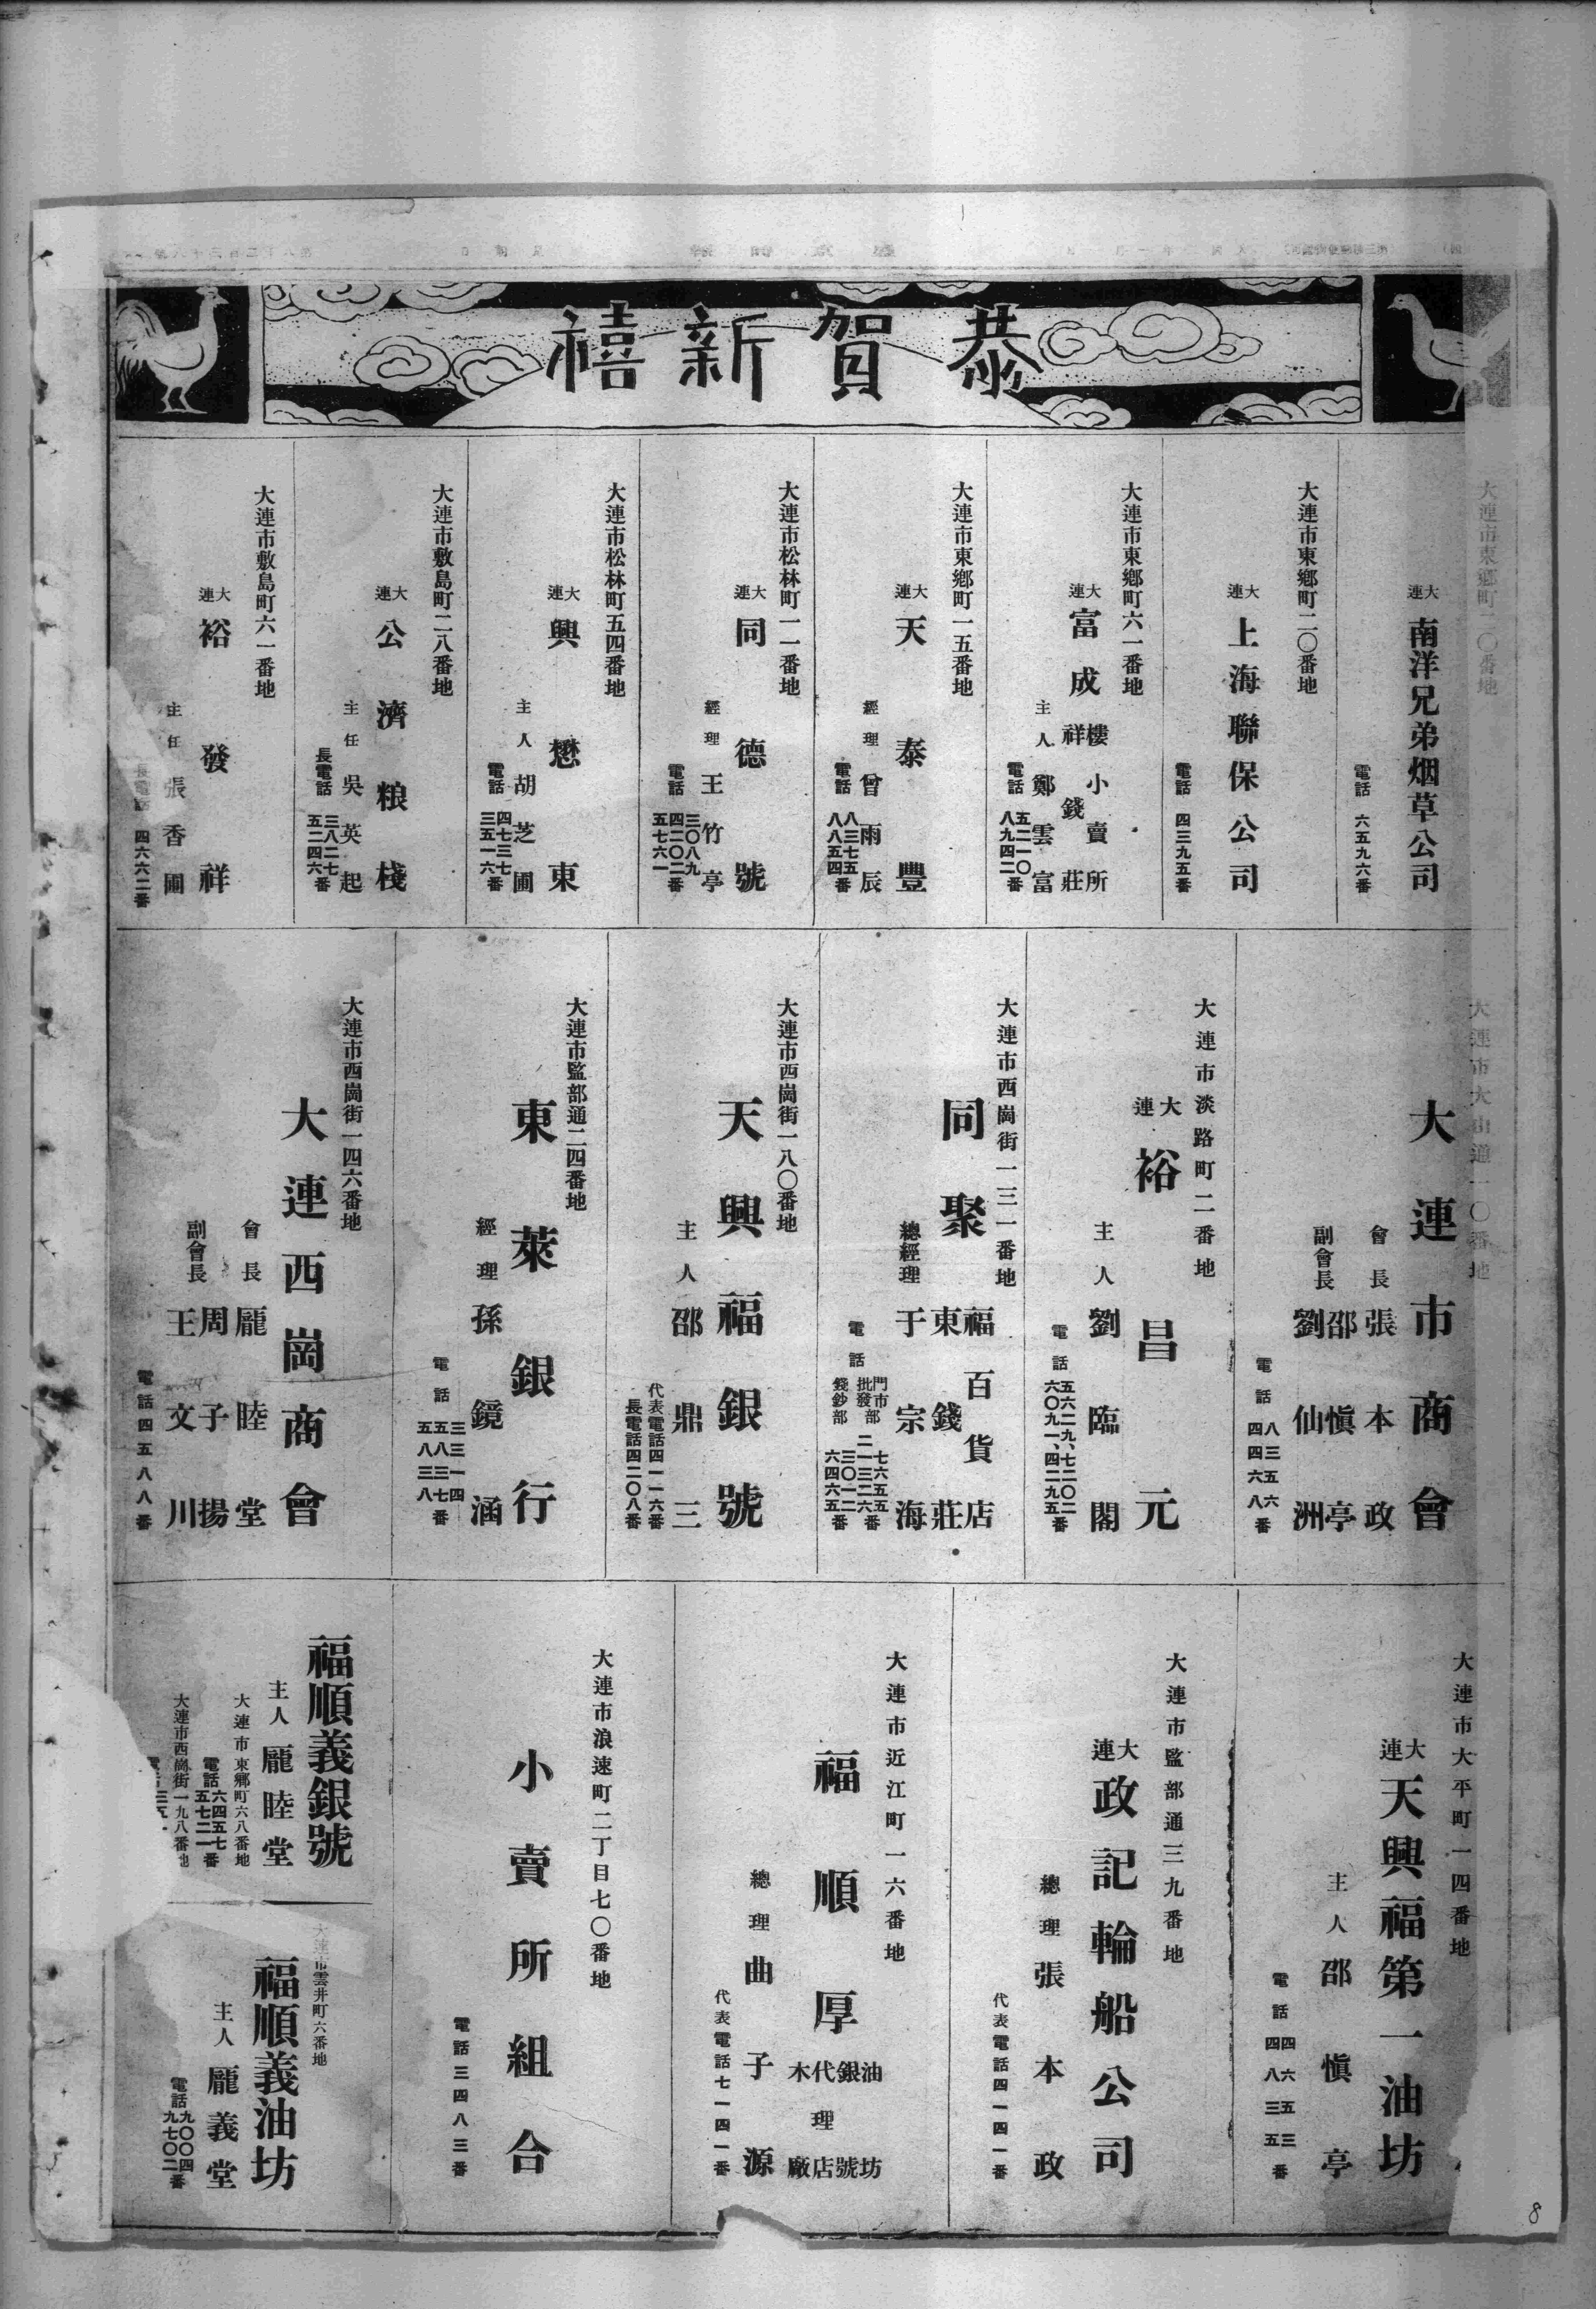 恭賀新禧
大連市東鄉町一〇番地
大連 南洋兄弟烟草公司
電話 六五九六番
大連市東鄉町二〇番地
大連 上海聯保公司
電話 四三九五番
大連市東鄉町六一番地
大連 富成
樓小賣所
祥錢莊
主人 鄭雲富
電話 五二一〇
八九四二番
大連市東鄉町一五番地
大連 天泰豐
經理 曾雨辰
電話 八三七五
八八五四番
大連市松林町一一番地
大連 同德號
經理 王竹亭
電話 三〇八九
四二〇二
五七六一番
大連市松林町五四番地
大連 興懋東
主人 胡芝圃
電話 四七三七
三五一六番
大連市敷島町二八番地
大連 公濟粮棧
主任 吳英起
長電話 三八二七
五二四六番
大連市敷島町六一番地
大連 裕發祥
主任 張香圃
長電話 四六六二番
大連市大山通一〇番地
大連市商會
會長 張本政
副會長 邵慎亭
劉仙洲
電話 八三五六
四四六八番
大連市淡路町二番地
大連 裕昌元
主人 劉臨閣
電話 五六二九、七二〇二
六〇九一、四二九五番
大連市西崗街一三一番地
同聚
福百貨店
東錢莊
總經理 于宗海
電話
門市部 七六五五
批發部 二一三二六番
錢鈔部 三〇一二
六四六五番
大連市西崗街一八〇番地
天興福銀號
主人 邵鼎三
代表電話四一一六番
長電話四二〇八番
大連市監部通二四番地
東萊銀行
經理 孫鏡涵
電話 三三一四
五八三七
五八三八番
大連市西崗街一四六番地
大連西崗商會
會長 龐睦堂
副會長 周子揚
王文川
電話四五八八番
大連市大平町一四番地
大連 天興福第一油坊
主人 邵慎亭
電話 四六五三
四八三五番
大連市監部通三九番地
大連 政記輪船公司
總理 張本政
代表電話四一四一番
大連市近江町一六番地
福順厚
油坊
銀號
代理店
木廠
總理 曲子源
代表電話七一四一番
大連市浪速町二丁目七〇番地
小賣所組合
電話三四八三番
福順義銀號
主人 龐睦堂
大連市東鄉町六八番地
電話 六四五七
五七二一番
大連市西崗街一九八番地
大連市雲井町六番地
福順義油坊
主人 龐義堂
電話 九〇〇四
九七〇二番
8